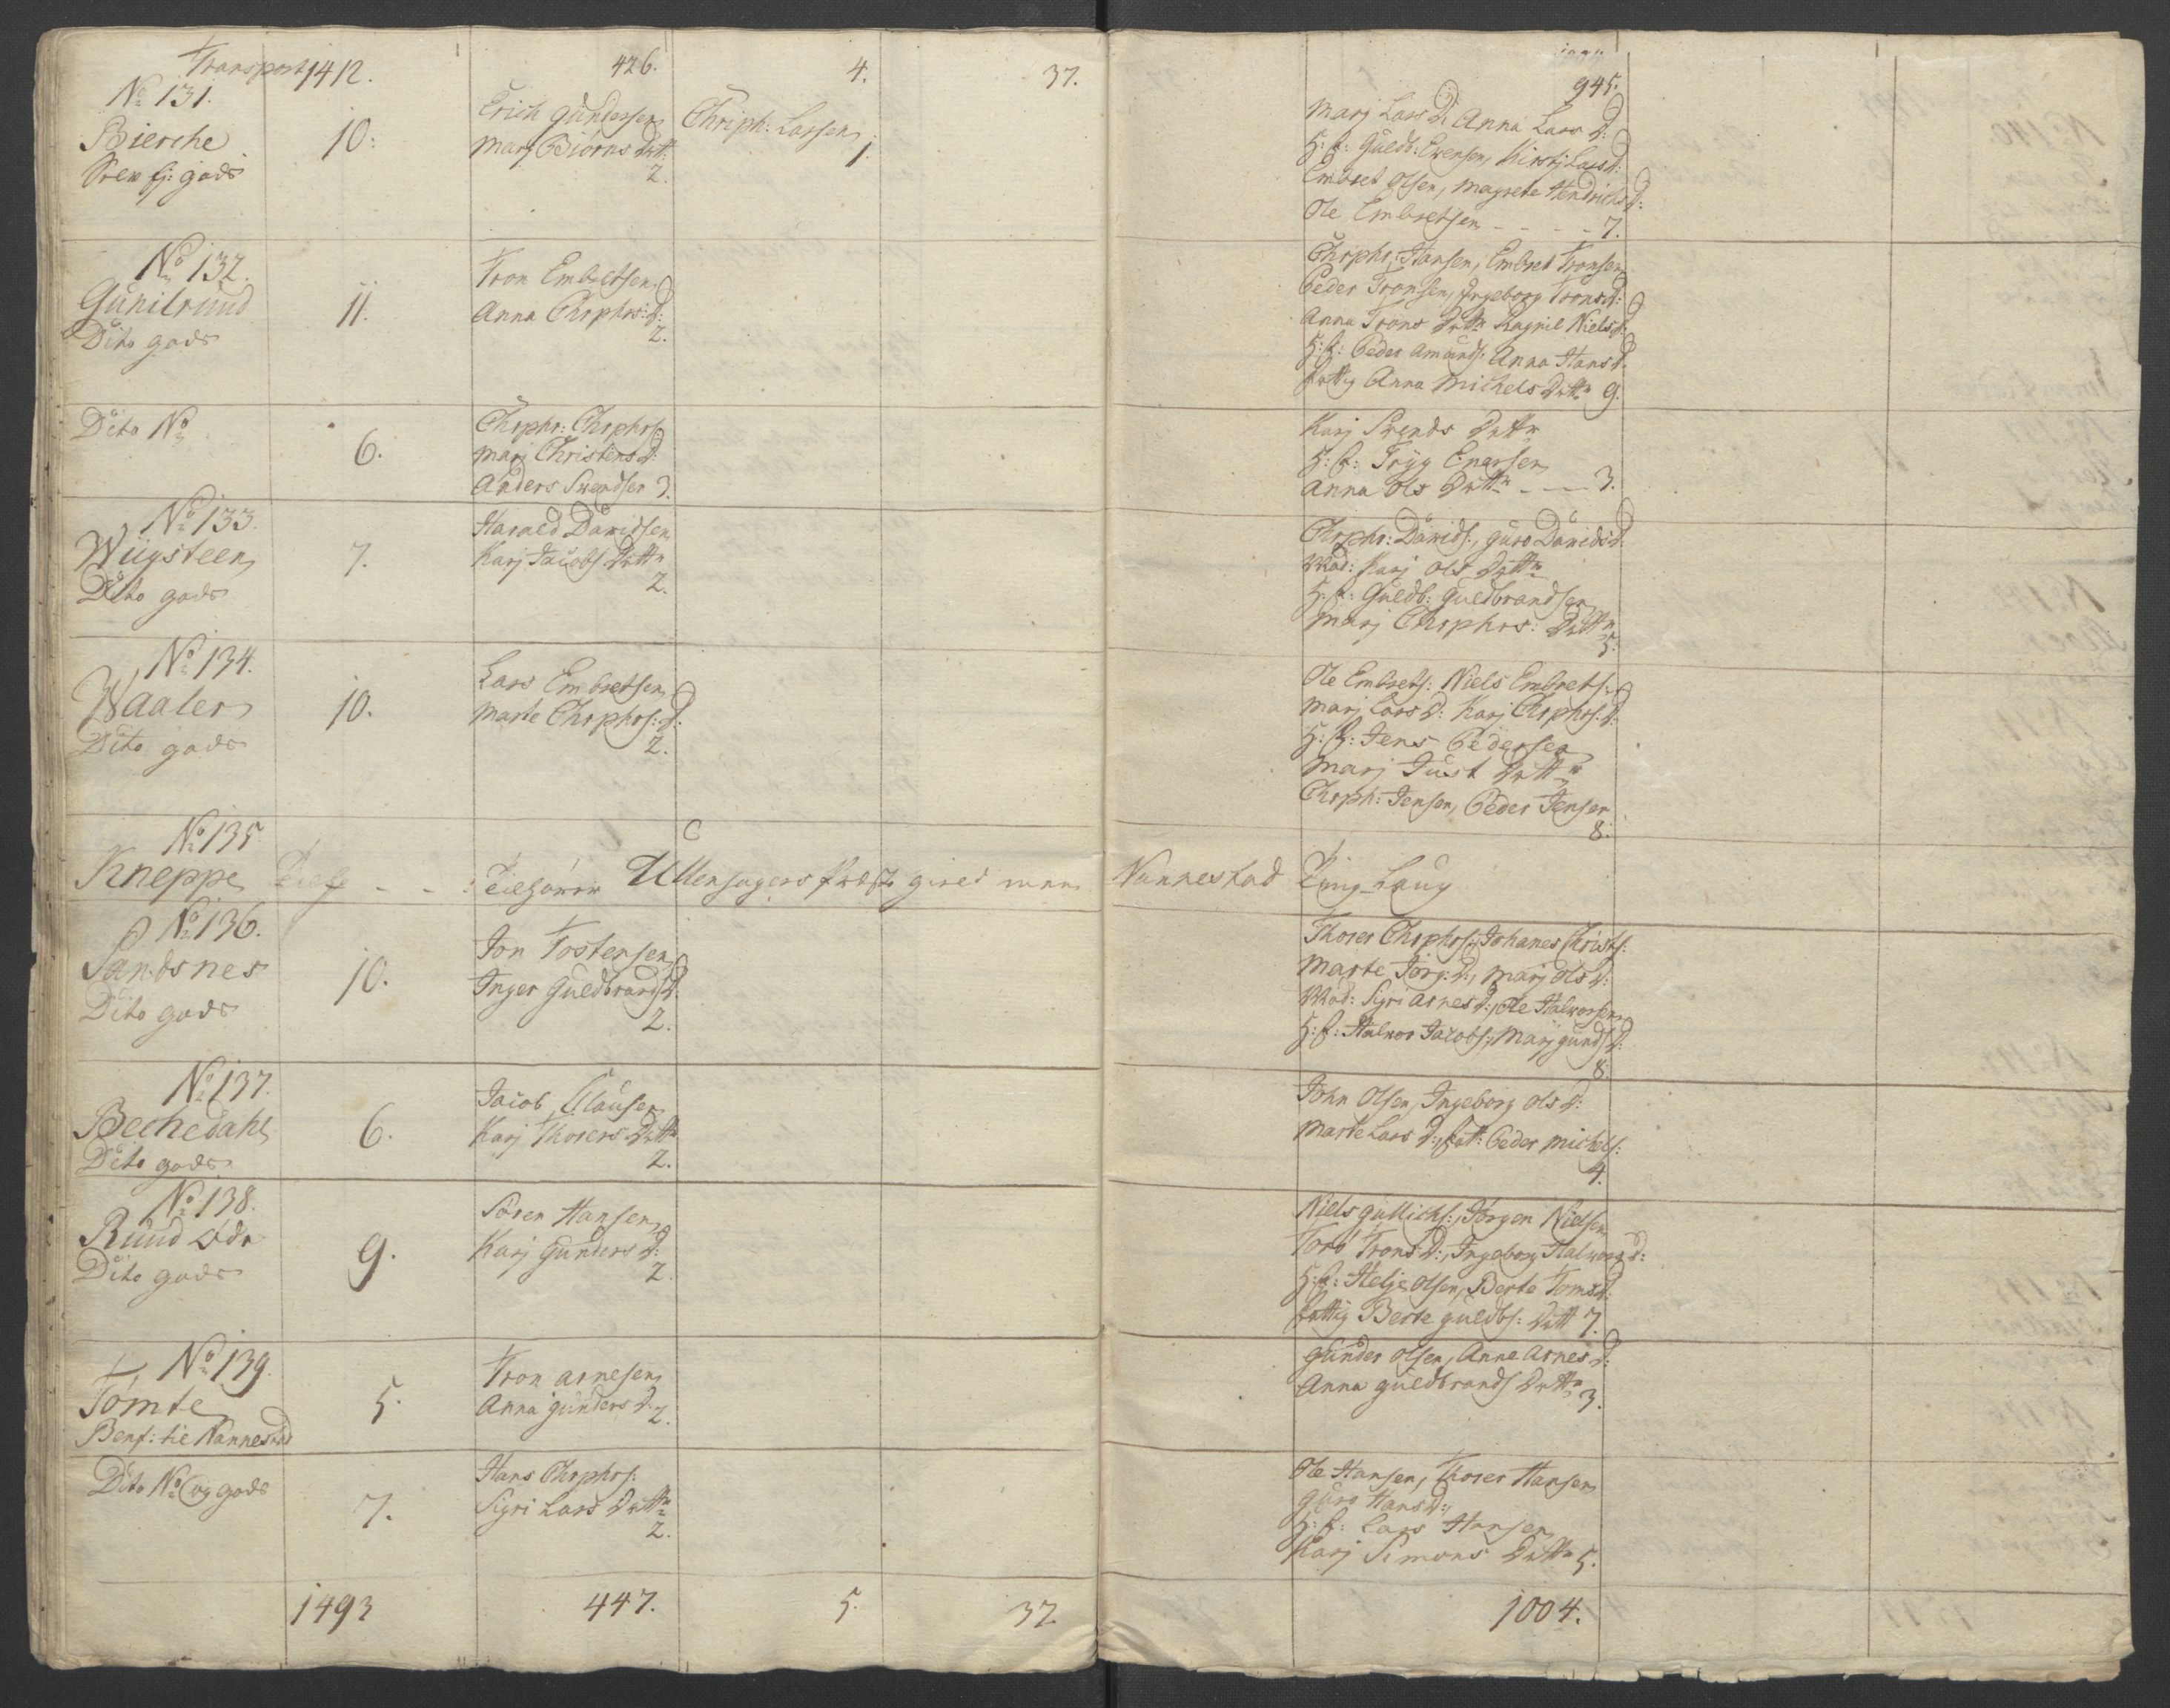 Transport 1412. 426. 4. 37. 945.
No 131.
Bierche
gods
10:
Erich Gundersen
Marj Biörns Datt:
2.
Chriph: Larsen
1.
Marj Lars D: Anna Lars D:
H: f: Guldb: Evensen, Kirstj Lars d:
Embret Olsen, Magrete Hendrichs D:
Ole Embretsen - - - - 7.
No 132.
Gunilrund
Dito gods
11.
Tron Embretsen
Anna Chrphrs: D:
2.
Chrphr: Hansen, Embret Tronsen
Peder Tronsen, Ingeborg Trons d:
Anna Trons Dattr Ragnil Niels d:
H: f: Peder Amunds: Anna Hans d.
fattig Anna Michels Dattr 9.
Dito No
6.
Chrphr: Chrphrs:
Marj Christens D:
Anders Svendsen 3.
Karj Svends Dattr
H: f: Tryg Enersen
Anna Ols Dattr - - - 3.
No 133.
Wiigsteen
Dito gods
7.
Harald Davidsen
Karj Jacobs Dattr
2.
Chrphr: Davids:, Guro Davids d.
Mad: Karj Ols Dattr
H: f: Guldb: Guldbrandsen
Marj Chrphrs: Dattr
5.
No 134.
Waaler
Dito gods
10.
Lars Embretsen
Marte Chrphrs: D:
2.
Ole Embrets: Niels Embrets:
Marj Lars D: Karj Chrphrs: D:
H: f: Jens Pedersen
Marj Just Dattr
Chrph: Jensen, Peder Jensen
8.
No 135
Kneppe - - : Ullensagers Nannestad Ting-Laug
No 136.
Sandsnes
Dito gods
10.
Jon Tostensen
Inger Guldbrands D:
2.
Thorer Chrphrs:, Johanes Christs:
Marte Jörg: D:, Marj Ols D:
Mad: Sigri Arnes d:, Ole Halvorsen
H: f: Halvor Jacobs:, Marj Gunds D:
8.
No 137.
Bechedahl
Dito gods
6.
Jacob Clausen
Karj Thorers Dattr
2.
John Olsen, Ingeborg Ols D:
Marte Lars D:, fatt: Peder Michels:
4.
No 138.
Ruud Ödr
Dito gods
9.
Sören Hansen
Karj Gunders D:
2.
Niels Gullichs:, Jörgen Nielsen
Torö Trons D:, Ingeborg Halvors d:
H: f: Helje Olsen, Berte Toms d:
fattig Berte Guldbs: Datt 7.
No 139.
Tömte
Benf: til Nannestad
5.
Tron Arnesen
Anna Gunders D. 2.
Gunder Olsen, Anne Arnes D:
Anna Guldbrands Dattr 3.
Dito No og gods
7.
Hans Chrphrs:
Sigri Lars Dattr
2.
Ole Hansen, Thorer Hansen
Guro Hans D:,
H: f: Lars Hansen
Karj Simons Dattr 5.
1493 447. 5. 37 1004.